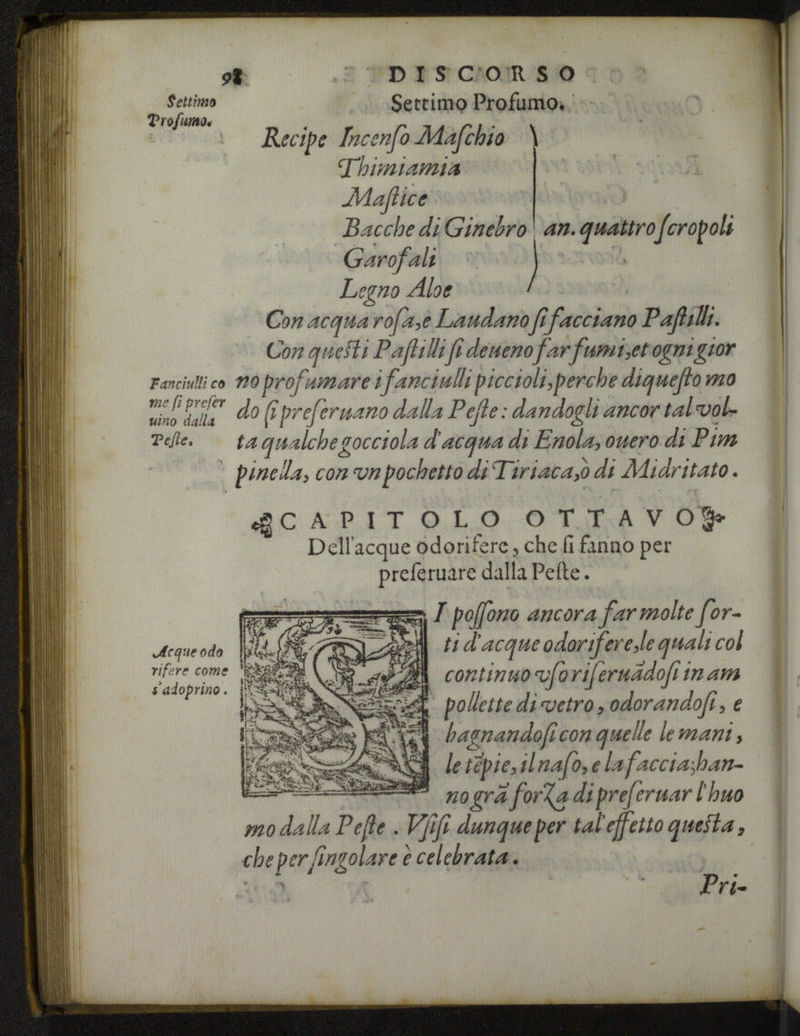 98 DISCORSO
Settimo
Profumo.
Settimo Profumo.
Recipe Incenſo Maſchio
Thimiamia
Maſtice
Bacche di Ginebro an. quattro ſcropoli
Garofali
Legno Aloe
Con acqua roſa, e Laudano ſi facciano Paſtilli.
Con queſti Paſtilli ſi deueno far fumi, et ogni gior
no profumare i fanciulli piccioli, perche di queſto mo
do ſi preſeruano dalla Peſte: dandogli ancor tal vol-
ta qualche gocciola d'acqua di Enola, ouero di Pim
pinella, con vn pochetto di Tiriaca, ò di Midritato.
Fanciulli co
me ſi preſer
uino dalla
Peſte.
CAPITOLO OTTAVO
Dell'acque odorifere, che ſi fanno per
preſeruare dalla Peſte.
Acque odo
rifere come
s'adoprino.
SI poſſono ancora far molte ſor-
ti d'acque odorifere, le quali col
continuo vſo riſeruãdoſi in am
pollette di vetro, odorandoſi, e
bagnandoſi con quelle le mani,
le tẽpie, il naſo, e la faccia; han-
no grã forza di preſeruar l'huo
mo dalla Peſte. Vſiſi dunque per tal effetto queſta,
che per ſingolare è celebrata.
Pri-